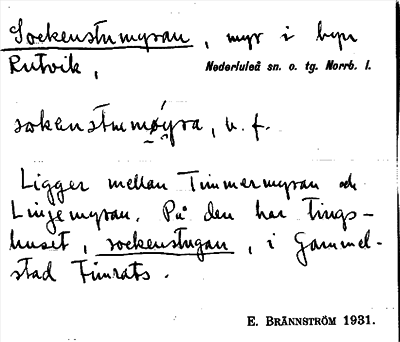 Sockenstumyran, myr i byn
Rutvik, Nederluleå sn. o. tg. Norrb. l.
sokenstummøyra, n. f.
Ligger mellan Timmermyran och
Linjemyran. På den har tings-
huset, sockenstugan, i Gammel-
stad timrats.
E. BRÄNNSTRÖM 1931.